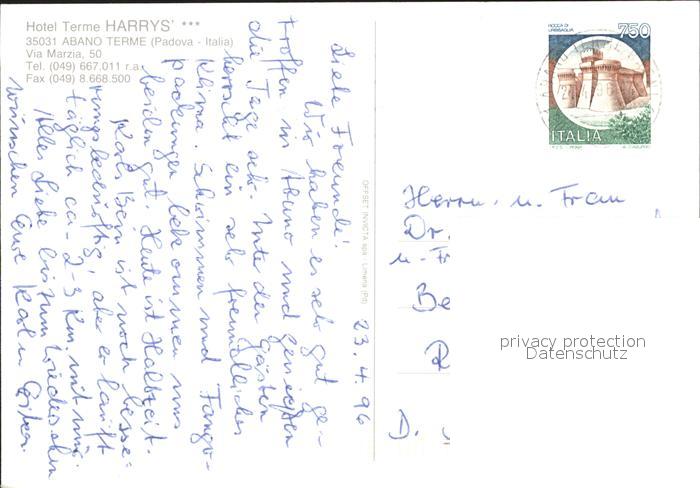 Hotel Terme HARRYS' ***
35031 ABANO TERME (Padova - Italia)
Via Marzia, 50
Tel. (049) 667.011 r.a.
Fax (049) 8.668.500
23.4.96
Liebe Freunde!
Wir haben es sehr gut ge-
troffen in Abano und genießen
die Tage sehr. Unter den Gästen
herrscht ein sehr freundliches
Klima. Schwimmen und Fango-
packungen bekommen uns
beiden gut. Heute ist Halbzeit.
Karls Bein ist noch besse-
rungsbedürftig, aber er läuft
täglich ca. 2-3 km mit mir.
Alles Liebe bis zum Wiedersehen
wünschen Eure Karl u.
OFFSET INVICTA spa - Limena (Pd)
ROCCA DI
URBISAGLIA
750
ITALIA
Herrn u. Frau
Dr.
u. Fr
Be
R
D.
privacy protection
Datenschutz